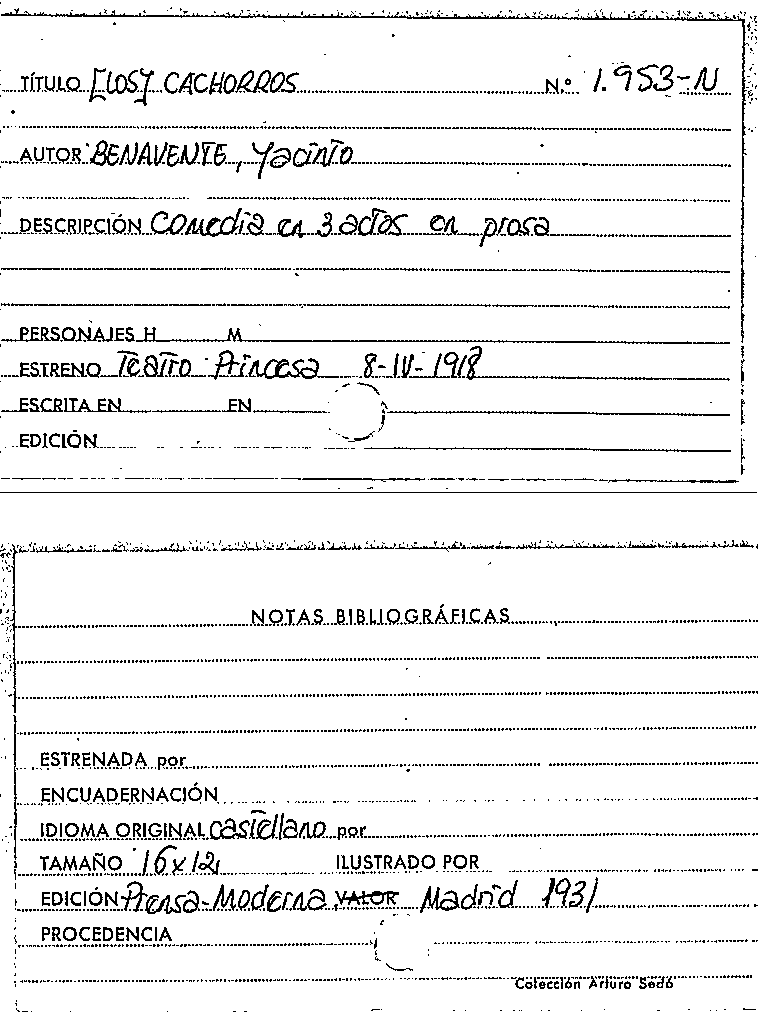 TÍTULO [LOS] CACHORROS N.º 1.953-N
AUTOR BENAVENTE, Jacinto
DESCRIPCIÓN Comedia en 3 actos en prosa
PERSONAJES H M
ESTRENO Teatro Princesa 8-IV-1918
ESCRITA EN EN
EDICIÓN
NOTAS BIBLIOGRÁFICAS
ESTRENADA por
ENCUADERNACIÓN
IDIOMA ORIGINAL castellano por
TAMAÑO 16x12
ILUSTRADO POR
EDICIÓN Prensa-Moderna VALOR Madrid 1931
PROCEDENCIA
Colección Arturo Sedó